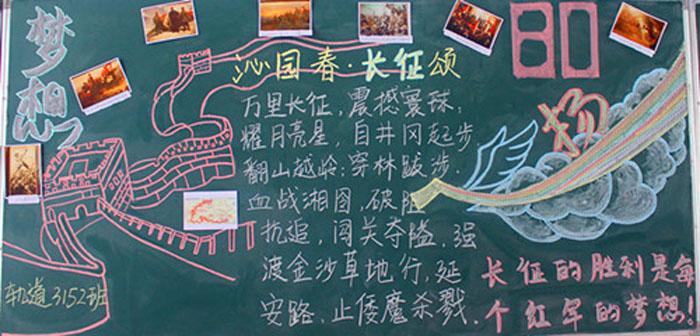 梦想
沁园春·长征颂
万里长征，震撼寰球；
耀月亮星，自井冈起步
翻山越岭；穿林跋涉.
血战湘图，破阻
抗追，闯关夺隘，强
渡金沙草地行，延
安路，止倭魔杀戮.
80
扬
长征的胜利是每
个红军的梦想.
轨道3152班